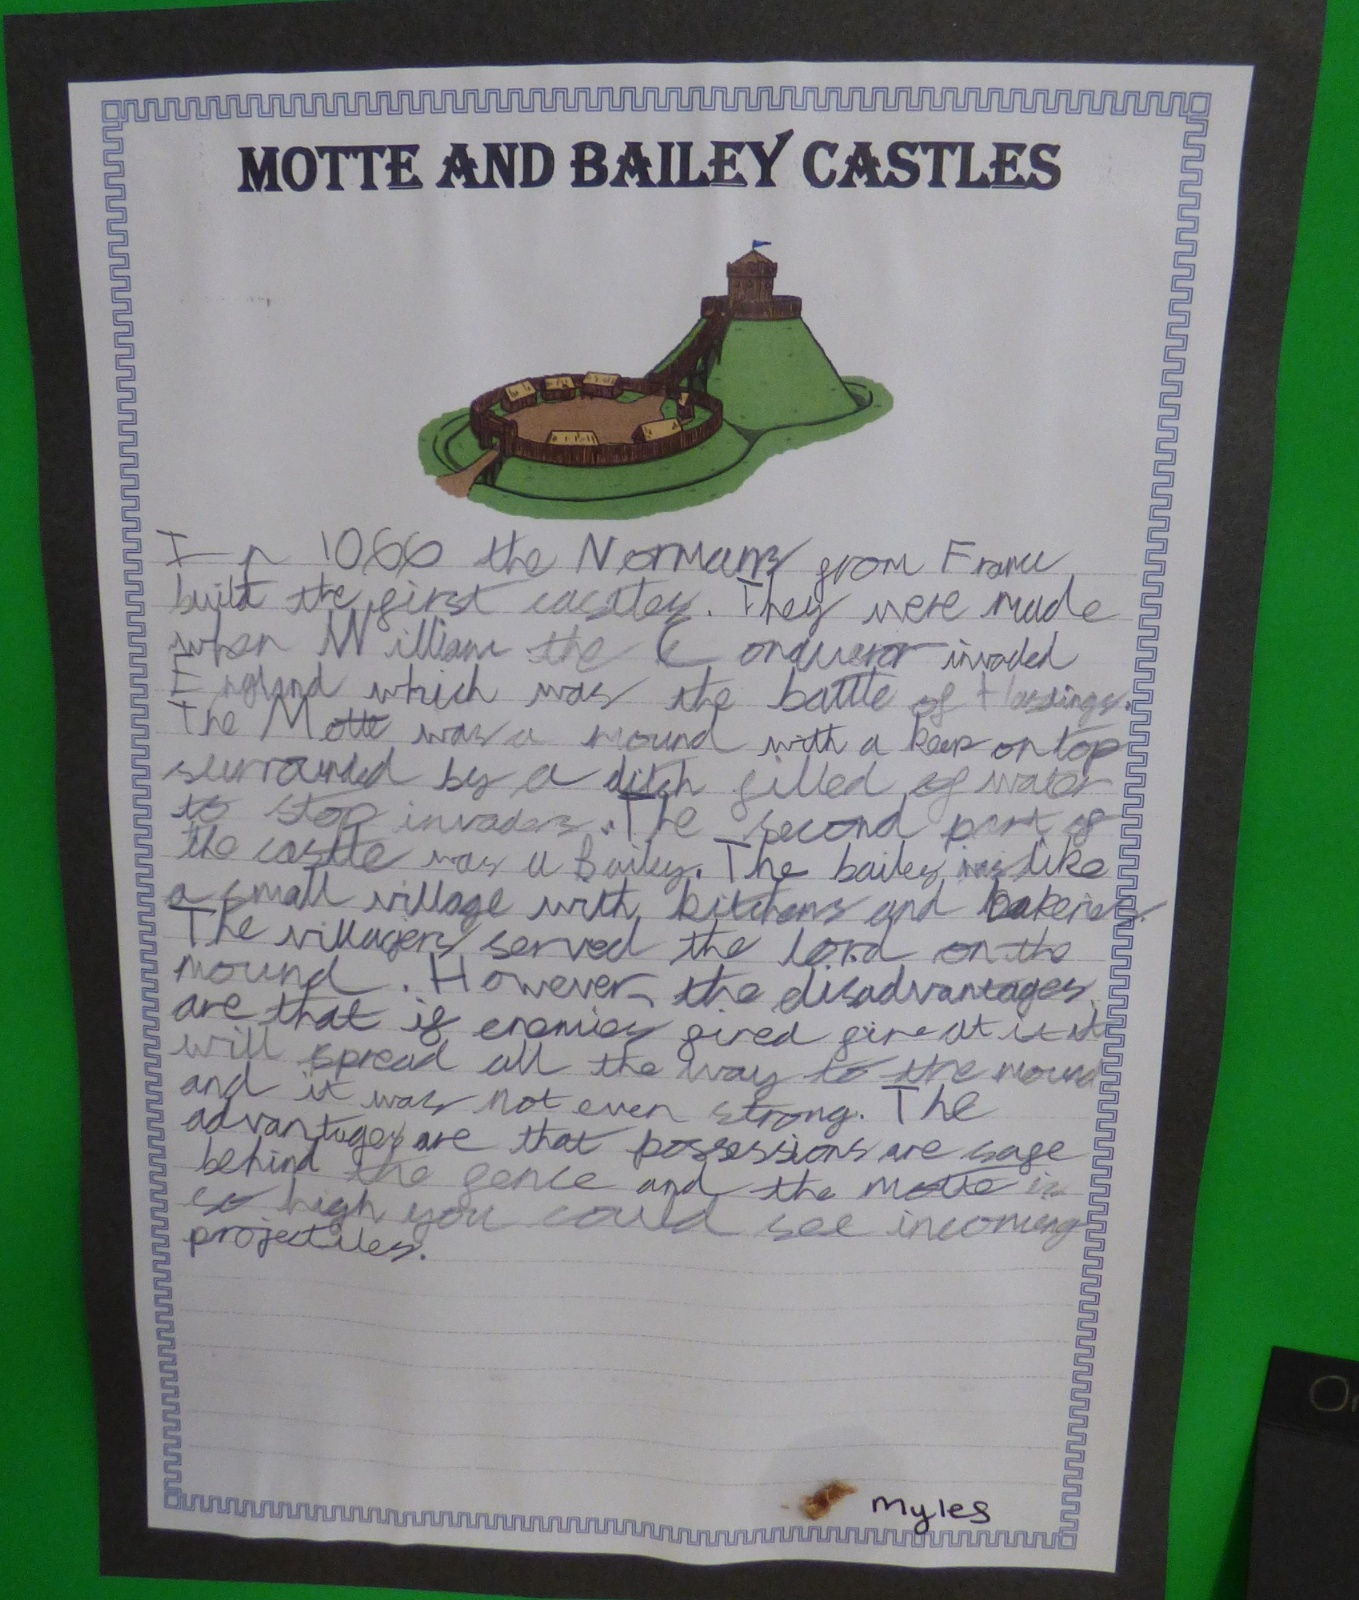 MOTTE AND BAILEY CASTLES
In 1066 the Normans from France
built the first castles. They were made
when William the Conqueror invaded
England which was the battle of Hastings.
The Motte was a mound with a keep on top
surrounded by a ditch filled of water
to stop invaders. The second part of
the castle was a Bailey. The bailey was like
a small village with kitchens and bakeries.
The villagers served the lord on the
mound. However, the disadvantages
are that if enemies fired fire at it it
will spread all the way to the mound
and it was not even strong. The
advantages are that possessions are safe
behind the fence and the motte is
so high you could see incoming
projectiles.
Myles